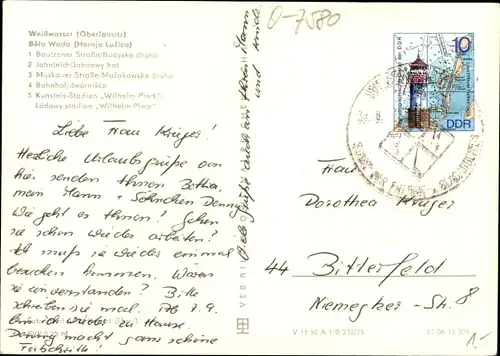 O-7580
Weißwasser (Oberlausitz)
Běła Woda (Hornja Łužica)
1 Bautzener Straße/Budyska dróha
2 Jahnteich/Jahnowy hat
3 Muskauer Straße/Mužakowska dróha
4 Bahnhof/dwórnišćo
5 Kunsteis-Stadion „Wilhelm Pieck“
Lodowy stadion „Wilhelm Pieck“
Liebe Frau Krüger!
Herzliche Urlaubsgrüße von
hier senden Ihnen
mein Mann + Söhnchen Denny.
Wie geht es Ihnen? Gehen
sie schon wieder arbeiten?
Ich muß ja wieder einmal
besuchen kommen. Wären
sie einverstanden? Bitte
schreiben sie mal. Ab 7.9.
bin ich wieder zu Hause.
Denny macht ganz schöne
Fortschritte!
Mann
und
VEB BI
10
DDR
Frau
Dorothea Krüger
44 Bitterfeld
Niemegker-Str. 8
V 11 50 A 1/B 230/75
01 06 13 005
1.-